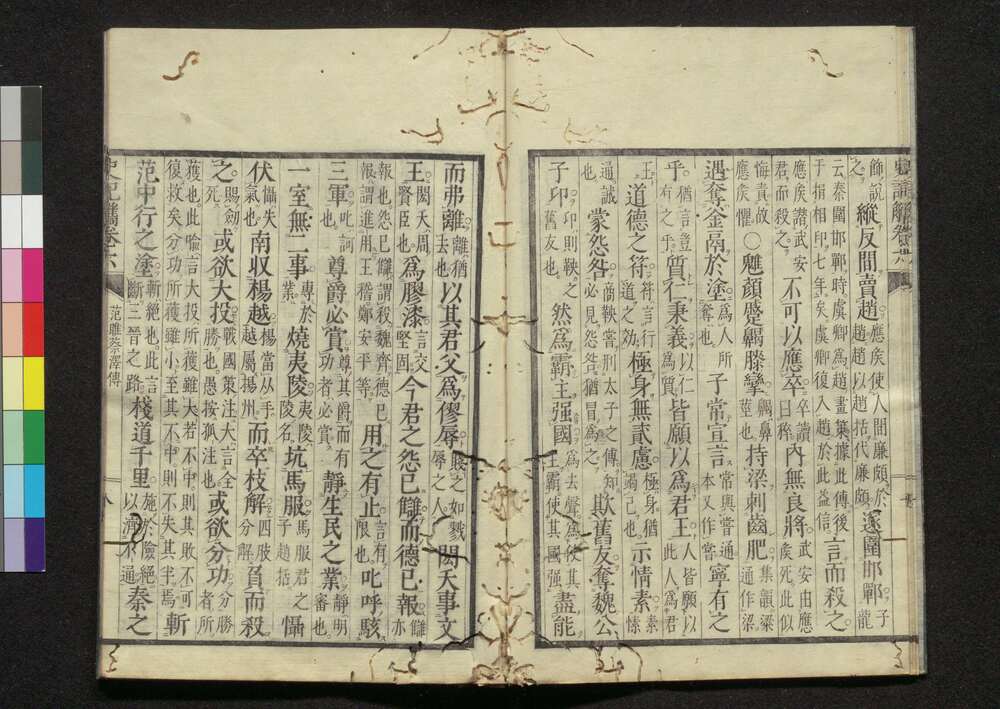 史記觽卷六
飾說之。縱反間賣趙應矦使人間廉頗於趙趙以趙括代廉頗遂圍邯鄲子龍
云秦圍邯鄲時虞卿爲趙畫策據此傳後于捐相印七年矣虞卿復入趙於此益信言而殺之
應矦譖武安君而殺之不可以應卒卒讀曰稡内無良將武安由應矦死此似
悔責故應矦懼〇魋顏蹙齃膝攣齃鼻莖也持梁刺齒肥集韻粱通作梁
遇奪釜鬲於塗爲人所奪也子常宣言常與嘗通本又作嘗寧有之
乎猶言豈有之乎質仁秉義以仁爲質皆願以爲君王人皆願以此人爲君
王道德之符符言行道之効極身無貳慮極身猶竭己也示情素素愫
通誠也蒙怨咎商鞅常刑太子之傅知必見怨咎猶冒爲之欺舊友奪魏公
子卬卬則鞅之舊友也然爲霸主强國爲去聲爲使其主霸使其國强盡能
而弗離離猶去也以其君父爲僇辱賤之如戮辱之人閎夭事文
王閎夭周賢臣也爲膠漆言交堅固今君之怨已讎而德已報讎亦
報也怨已讎謂殺魏齊德已報謂進用王稽鄭安平等用之有止言有限也叱呼駭
三軍叱訶也尊爵必賞尊其爵而有功者必賞靜生民之業靜明審也
一室無二事專於業燒夷陵夷陵陵名坑馬服馬服君之子趙括懾
伏懾失氣也南収楊越楊當从手越屬揚州而卒枝解四肢分解負而殺
之賜劍死或欲大投戰國策注大言全勝也愚按孤注也或欲分功分勝者所
獲也此喩言大投所獲雖大若不中則其敗不可復救矣分功所獲雖小至其不中則不失其半焉斬
范中行之塗斬絶也此言斷三晉之路棧道千里施於險絕以濟不通秦之
史記觽卷六 范雎蔡澤傳 八